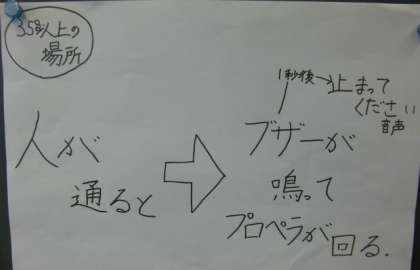 35°以上の
場所
人が
通ると
ブザーが
鳴って
プロペラが回る.
1秒後→止まって
ください
音声